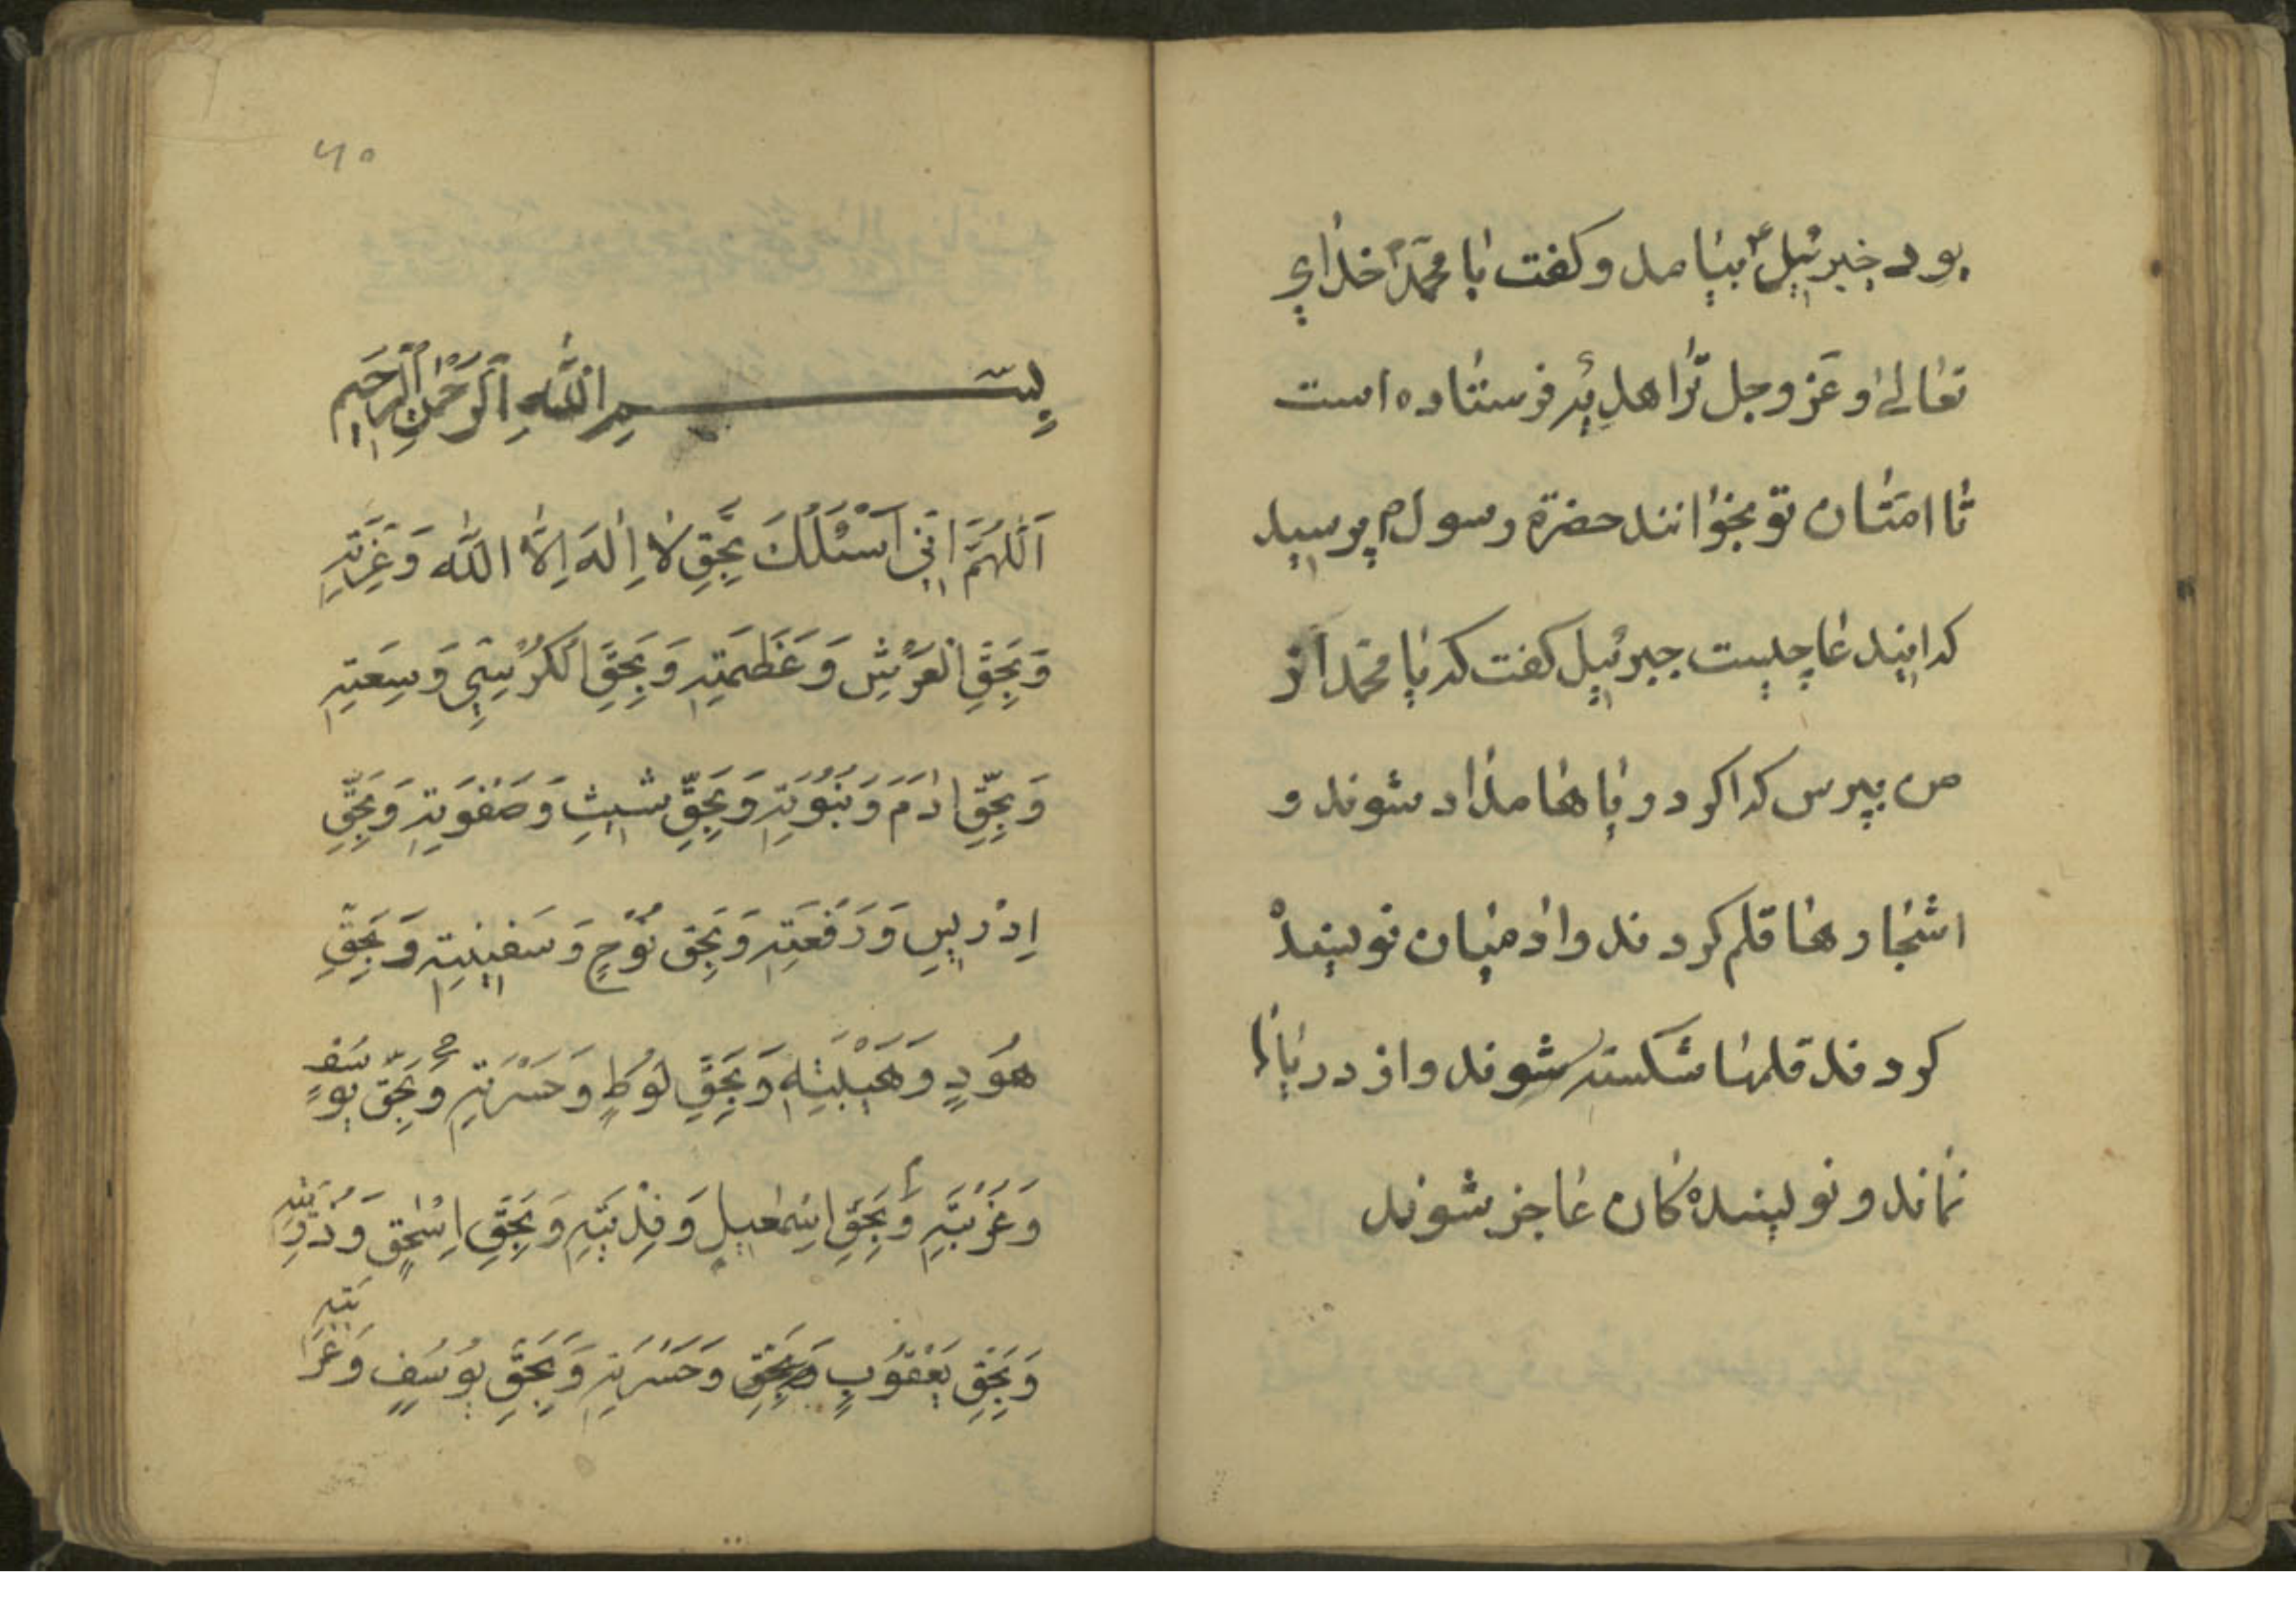 بود جبرئیل ع بیامد و کفت یا محمد خدای
تعالی او عز و جل ترا هدیه فرستاده است
تا امتان تو بخوانند حضرة رسول م پرسید
که این دعا چیست جبرئیل کفت که یا محمد از
من بپرس که اکر دریاها مداد شوند و
اشجارها قلم کردند و ادمیان نویسنده
کردند قلمها شکسته شوند و از دریاها
نماند و نویسنده کان عاجز شوند
۶۵
بِسْمِ اللَّهِ الرَّحْمٰنِ الرَّحِيمِ
اَللّٰهُمَّ اِنِّي اَسْئَلُكَ بِحَقِّ لَا اِلٰهَ اِلَّا اللّٰه وَعِزَّتِهِ
وَبِحَقِّ الْعَرْشِ وَعَظَمَتِهِ وَبِحَقِّ الْكُرْسِيِّ وَسِعَتِهِ
وَبِحَقِّ اٰدَمَ وَنُبُوَّتِهِ وَبِحَقِّ شِيثِ وَصَفْوَتِهِ وَبِحَقِّ
اِدْرِيسِ وَرَفْعَتِهِ وَبِحَقِّ نُوْحٍ وَسَفِينَتِهِ وَبِحَقِّ
هُودٍ وَهَيْبَتِهِ وَبِحَقِّ لُوطٍ وَحَسْرَتِهِ وَبِحَقِّ يوسف
وَغُرْبَتِهِ وَبِحَقِّ اِسْمٰعِيلٍ وَفِدْيَتِهِ وَبِحَقِّ اِسْحٰقٍ
وَبِحَقِّ يَعْقُوبٍ وَحَسْرَتِهِ وَبِحَقِّ يُوسُفٍ وَغُرْبَتِهِ